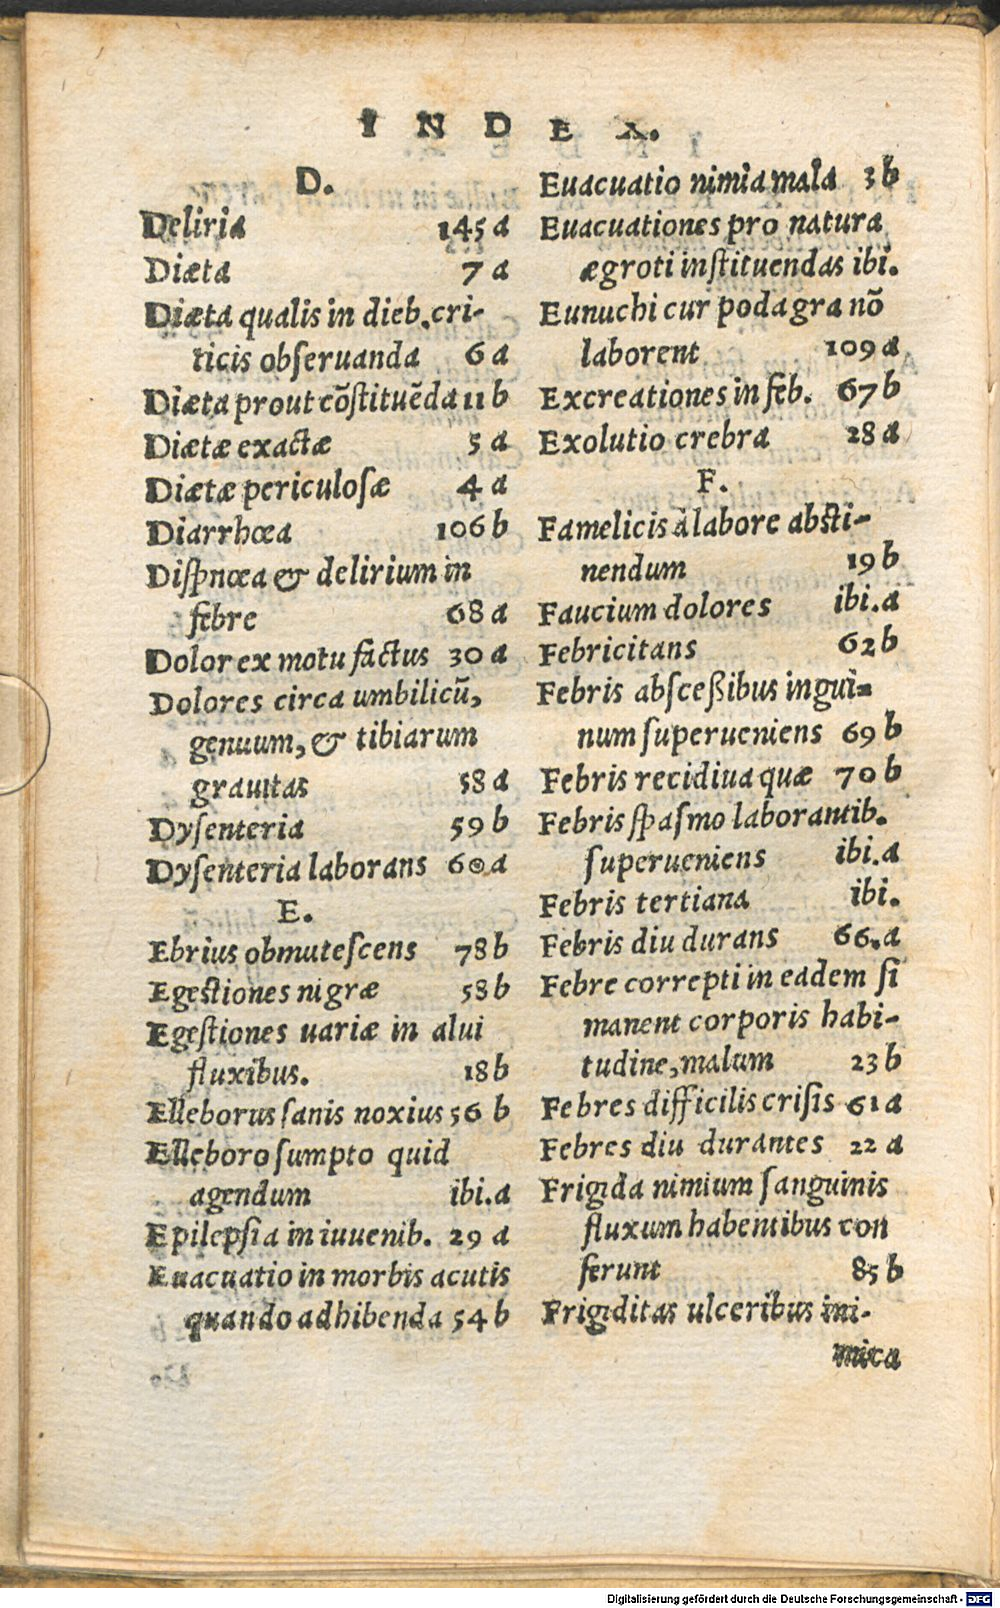 INDEX.
D.
Deliria 145 a
Diæta 7 a
Diæta qualis in dieb. cri-
ticis obſeruanda 6 a
Diæta prout cõſtituẽda 11 b
Diætæ exactæ 5 a
Diætæ periculoſæ 4 a
Diarrhœa 106 b
Diſpnœa & delirium in
febre 68 a
Dolor ex motu factus 30 a
Dolores circa umbilicũ,
genuum, & tibiarum
grauitas 58 a
Dyſenteria 59 b
Dyſenteria laborans 60 a
E.
Ebrius obmuteſcens 78 b
Egeſtiones nigræ 58 b
Egeſtiones uariæ in alui
fluxibus. 18 b
Elleborus ſanis noxius 56 b
Elleboro ſumpto quid
agendum ibi. a
Epilepſia in iuuenib. 29 a
Euacuatio in morbis acutis
quando adhibenda 54 b
Euacuatio nimia mala 3 b
Euacuationes pro natura
ægroti inſtituendas ibi.
Eunuchi cur podagra nõ
laborent 109 a
Excreationes in feb. 67 b
Exolutio crebra 28 a
F.
Famelicis à labore abſti-
nendum 19 b
Faucium dolores ibi. a
Febricitans 62 b
Febris abſceßibus ingui-
num ſuperueniens 69 b
Febris recidiua quæ 70 b
Febris ſpaſmo laborantib.
ſuperueniens ibi. a
Febris tertiana ibi.
Febris diu durans 66. a
Febre correpti in eadem ſi
manent corporis habi-
tudine, malum 23 b
Febres difficilis criſis 61 a
Febres diu durantes 22 a
Frigida nimium ſanguinis
fluxum habentibus con
ferunt 85 b
Frigiditas ulceribus ini-
mica
Digitalisierung gefördert durch die Deutsche Forschungsgemeinschaft - DFG